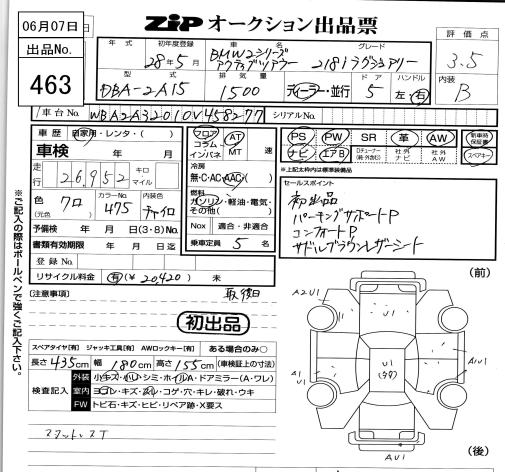 06月07日
出品No.
463
ZIP オークション出品票
年式 初年度登録 28年5月
車名 BMW2シリーズ アクティブツアラー
グレード 218iラグジュアリー
評価点 3.5
型式 DBA-2A15
排気量 1500
ディーラー・並行
ドア 5
ハンドル 左・右
内装 B
車台No. WBA2A32010V458277 シリアルNo.
車歴 自家用・レンタ・( )
車検 年 月
走行 26,952 キロ マイル
色 クロ (元色)
カラーNo. 475
内装色 チャイロ
予備検 年 月 日(3・8)No.
書類有効期限 年 月 日迄
登録No.
リサイクル料金 有(¥20,420) 未
フロア コラム インパネ AT MT 速
冷房 無・C・AC・AAC( )
燃料 ガソリン・軽油・電気・その他( )
Nox 適合・非適合
乗車定員 5 名
PS PW SR 革 AW 新車時保証書
ナビ エアB 社外ナビ 社外AW スペアキー
*上記太枠内は標準装備品
セールスポイント
初出品
パーキングサポートP
コンフォートP
サドルブラウンレザーシート
※ご記入の際はボールペンで強くご記入下さい。
[注意事項]
取後日
初出品
スペアタイヤ[有] ジャッキ工具[有] AWロックキー[有] ある場合のみ○
長さ 435cm 幅 180cm 高さ 155cm (車検証上の寸法)
検査記入
外装 小キズ・小凹・シミ・ホイルA・ドアミラー(A・ワレ)
室内 ヨゴレ・キズ・スレ・コゲ・穴・キレ・破れ・ウキ
FW トビ石・キズ・ヒビ・リペア跡・X要ス
(前)
A2 U1
U1
A1 U1
A1 U1
A U1
(後)